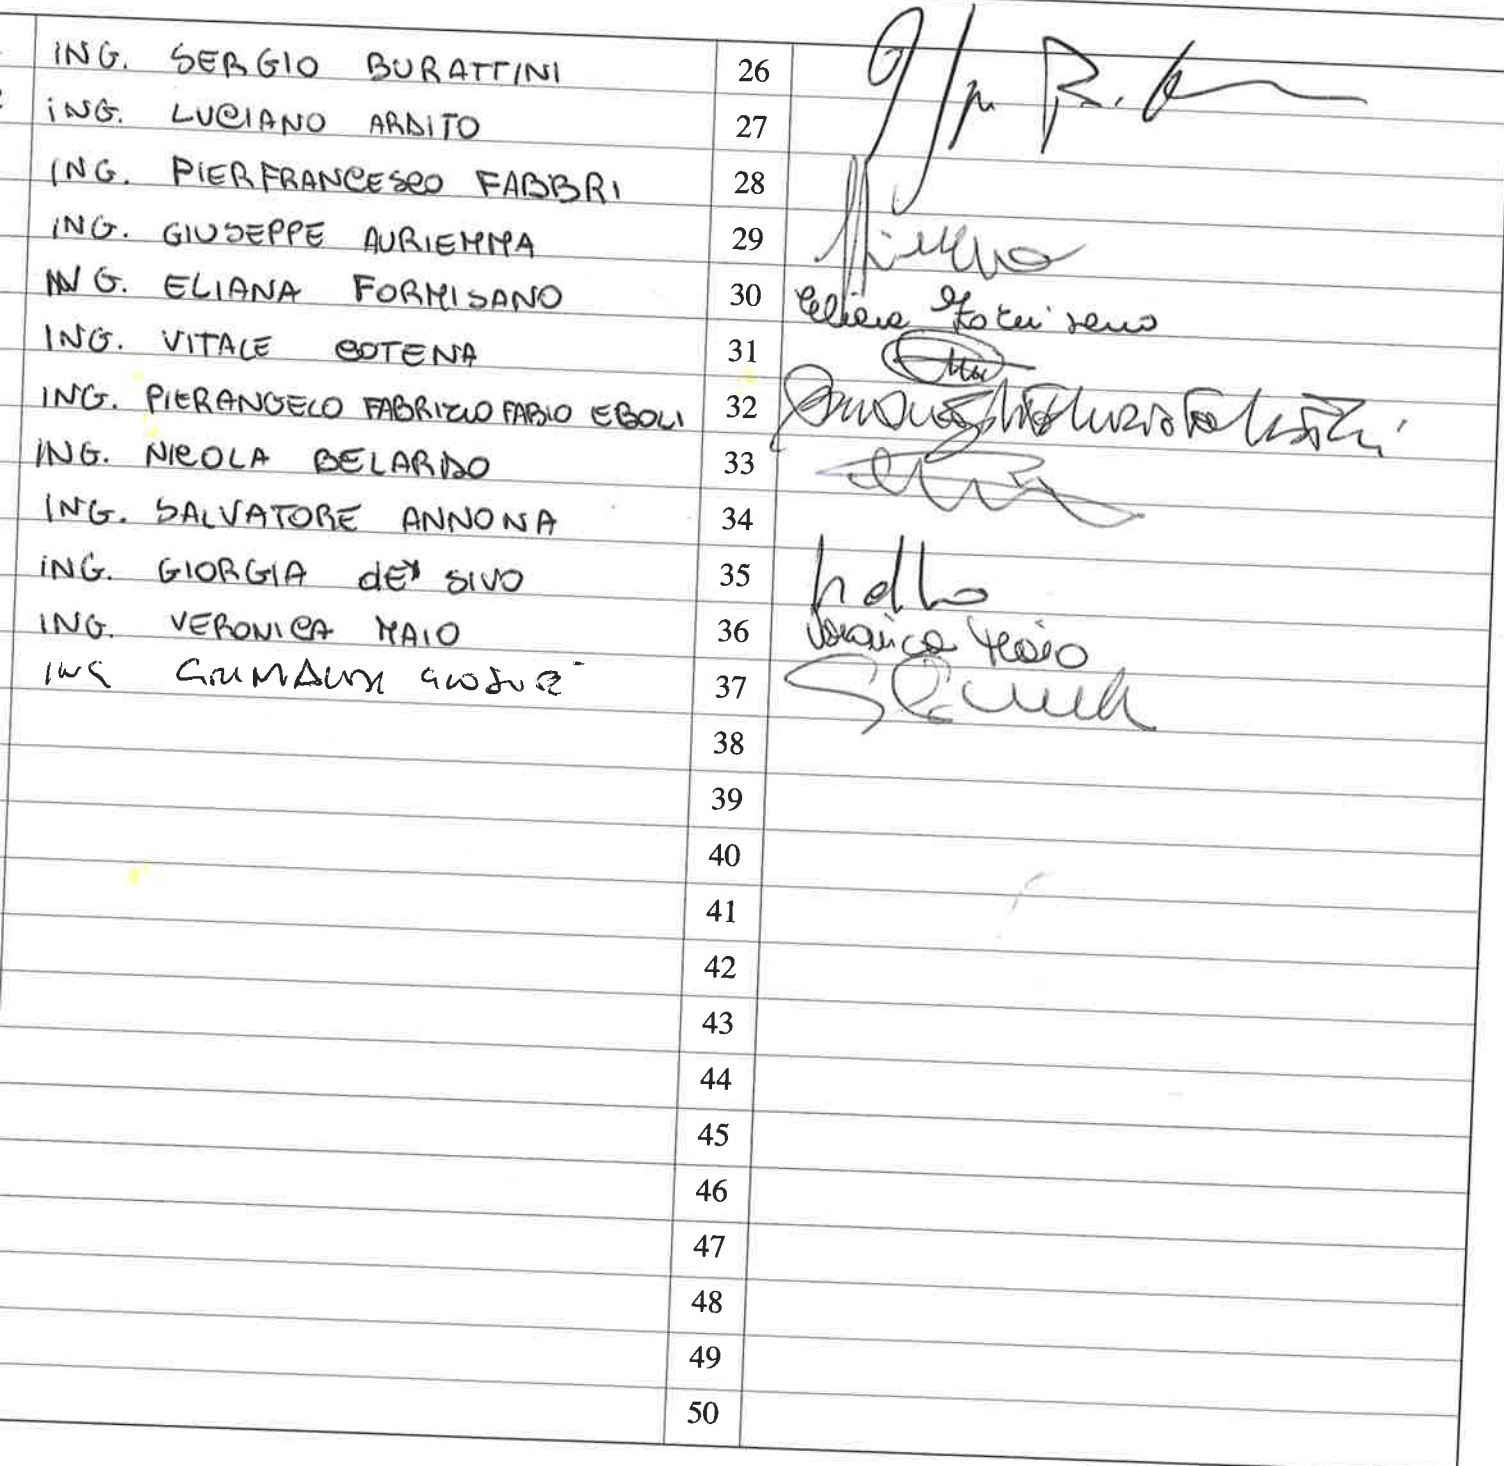 ING. SERGIO BURATTINI 26
ING. LUCIANO ARDITO 27
ING. PIERFRANCESCO FABBRI 28
ING. GIUSEPPE AURIEMMA 29
ING. ELIANA FORMISANO 30 Eliana Formisano
ING. VITALE COTENA 31
ING. PIERANGELO FABRIZIO FABIO EBOLI 32
ING. NICOLA BELARDO 33
ING. SALVATORE ANNONA 34
ING. GIORGIA dE' SIVO 35
ING. VERONICA MAIO 36 Veronica Maio
ING GRIMALDI GIOSUE' 37
38
39
40
41
42
43
44
45
46
47
48
49
50